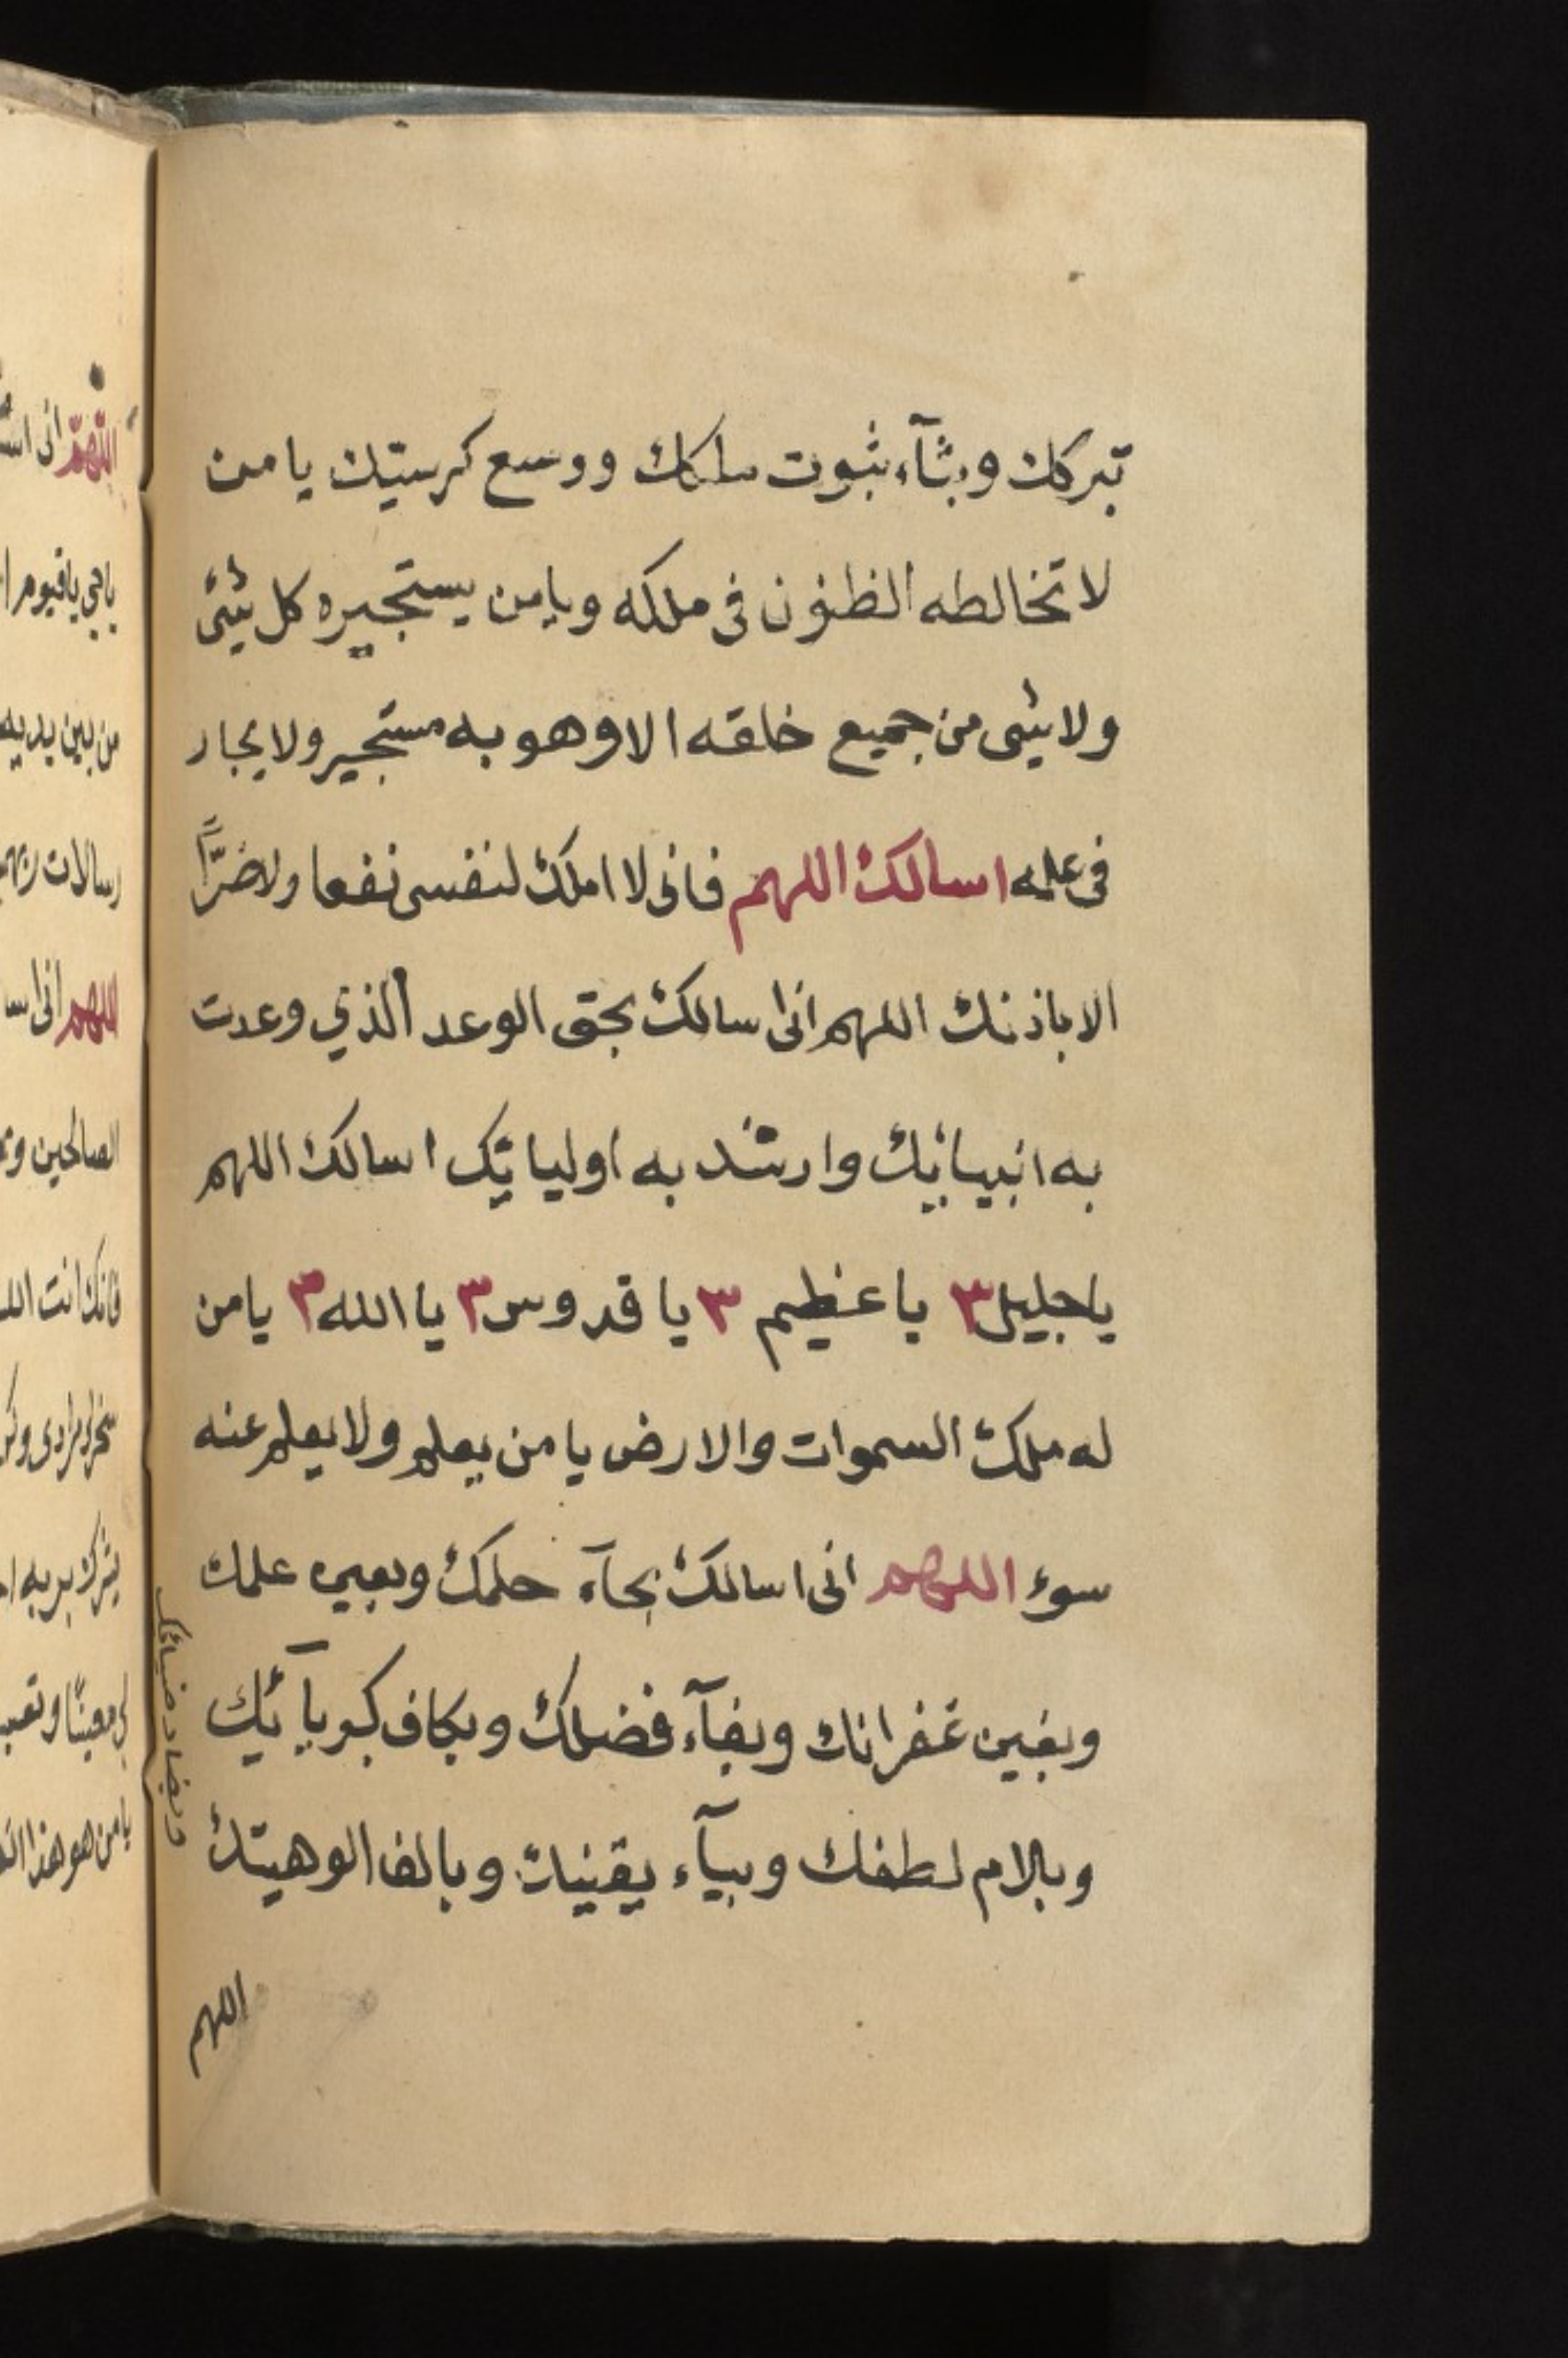 تبركك وبثآء ثبوت ملكك ووسع كرستيك يا من
لا تخالطه الظنون فى ملكه ويامن يستجيره كل شئ
ولا شئى من جميع خلقه الا وهو به مستجير ولا يجار
فى علمه اسالك اللهم فانى لا املك لنفسى نفعا ولا ضرًّا
الا باذنك اللهم انى اسالك بحق الوعد الذي وعدت
به انبيائيك وارشد به اوليائيك اسالك اللهم
يا جليل ٣ يا عظيم ٣ يا قدوس ٣ يا الله ٣ يا من
له ملك السموات والارض يا من يعلم ولا يعلم عنه
سوء اللهم انى اسالك بحآء حلمك وبعين علمك
وبغين غفرانك وبفآء فضلك وبكاف كبريآئيك
وبلام لطفك وبيآء يقينك وبالف الوهيتك
اللهم
وبضاد ضيائك